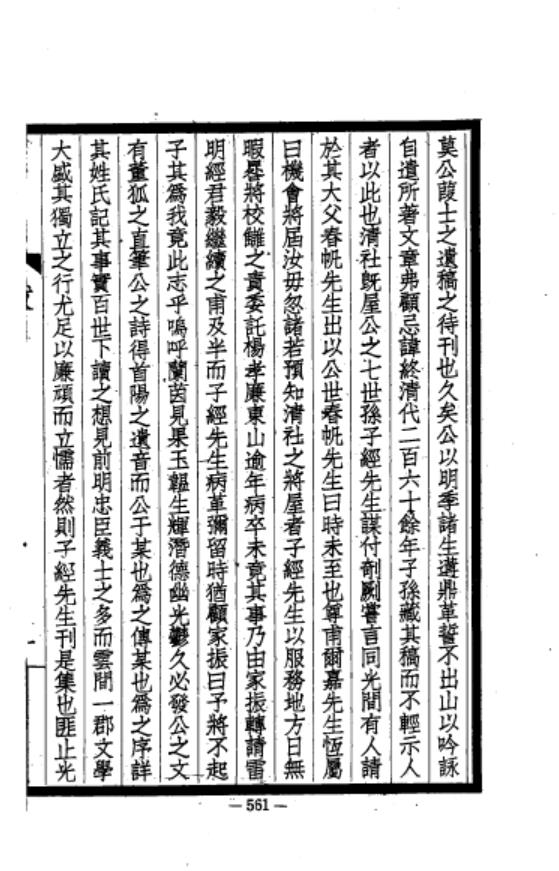 莫公葭士之遺稿之待刊也久矣公以明季諸生遘鼎革誓不出山以吟詠
自遣所著文章弗顧忌諱終清代二百六十餘年子孫藏其稿而不輕示人
者以此也清社既屋公之七世孫子經先生謀付剞劂嘗言同光間有人請
於其大父春帆先生出以公世春帆先生曰時未至也尊甫爾嘉先生恆屬
曰機會將屆汝毋忽諸若預知清社之將屋者子經先生以服務地方日無
暇晷將校讎之責委託楊孝廉東山逾年病卒未竟其事乃由家振轉請雷
明經君毅繼續之甫及半而子經先生病革彌留時猶顧家振曰予將不起
子其爲我竟此志乎嗚呼蘭茵見果玉韞生輝潛德幽光鬱久必發公之文
有董狐之直筆公之詩得首陽之遺音而公于某也爲之傳某也爲之序詳
其姓氏記其事實百世下讀之想見前明忠臣義士之多而雲間一郡文學
大盛其獨立之行尤足以廉頑而立懦者然則子經先生刊是集也匪止光
— 561 —